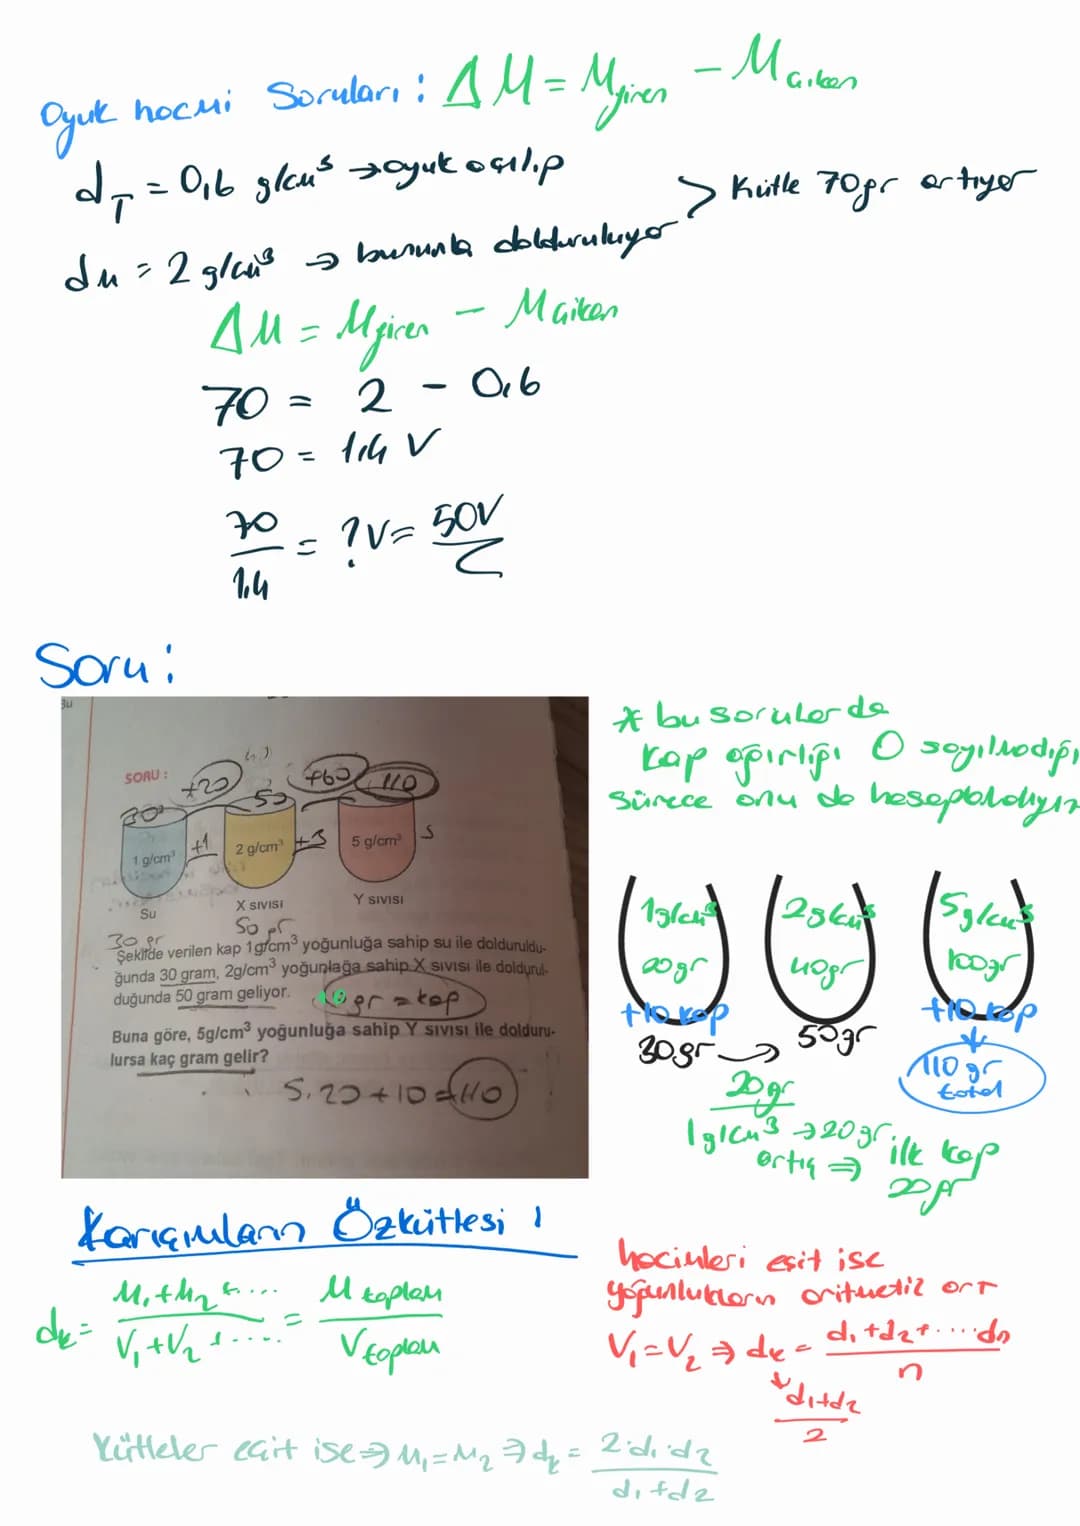 Oyuk hacmi Soruları : ΔM = Mgiren - Mçıkan
dT = 0,6 g/cm³ → oyuk açılıp
> Kütle 70gr artıyor
dM = 2 g/cm³ → bununla dolduruluyor
ΔM = Mgiren - Mçıkan
70 = 2 - 0,6
70 = 1,4 V
70/1,4 = ? V = 50V
Soru :
Bu
SORU :
+20
+60
110
30
50
1 g/cm³
+1
2 g/cm³
+3
5 g/cm³
5
Su
X sıvısı
Y sıvısı
30 gr
50 gr
Şekilde verilen kap 1g/cm³ yoğunluğa sahip su ile dolduruldu-
ğunda 30 gram, 2g/cm³ yoğunlağa sahip X sıvısı ile doldurul-
duğunda 50 gram geliyor.
10 gr = kap
Buna göre, 5g/cm³ yoğunluğa sahip Y sıvısı ile dolduru-
lursa kaç gram gelir?
5.20+10=110
* bu sorularda
kap ağırlığı 0 sayılmadığı
sürece onu da hesaplıdıyız
1g/cm³
2g/cm³
5g/cm³
20gr
40gr
100gr
+10 kap
+10 kap
30gr → 50gr
110 gr
total
20gr
1g/cm³ → 20gr
artış ⇒ ilk kap
20gr
Karışımların Özkütlesi !
dk = M₁+M₂+.../V₁+V₂+.... = M toplam/V toplam
hacimleri eşit ise
yoğunlukların aritmetik ort
V₁=V₂ ⇒ dk = d₁+d₂+....dn/n
d₁+d₂/2
Kütleler eşit ise ⇒ M₁=M₂ ⇒ dk = 2·d₁·d₂/d₁+d₂